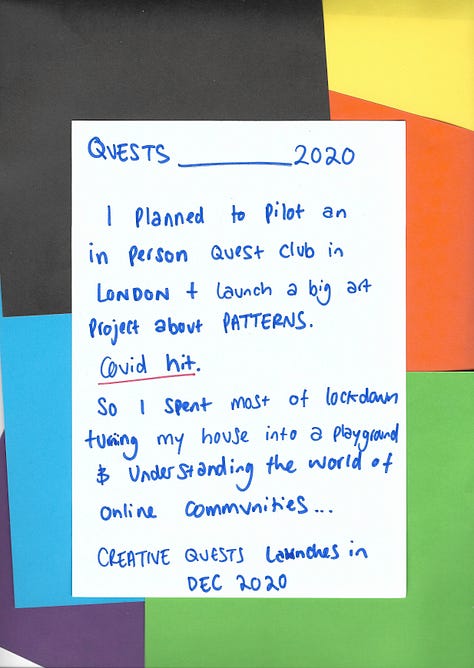 QUESTS ________ 2020
I Planned to Pilot an
in Person Quest Club in
LONDON + launch a big art
Project about PATTERNS.
Covid hit.
So I spent most of lockdown
turning my house into a playground
& Understanding the world of
online communities...
CREATIVE QUESTS launches in
DEC 2020